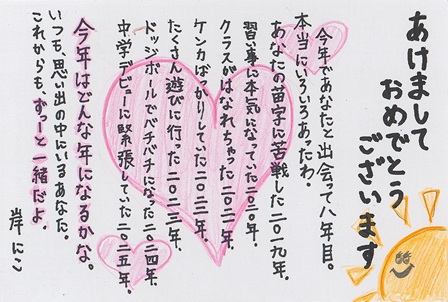 あけまして
おめでとう
ございます
今年であなたと出会って八年目。
本当にいろいろあったわ。
あなたの苗字に苦戦した二〇一九年。
習い事に本気になっていた二〇二〇年。
クラスがはなれちゃった二〇二一年。
ケンカばっかりしていた二〇二二年。
たくさん遊びに行った二〇二三年。
ドッジボールでバチバチになった二〇二四年。
中学デビューに緊張していた二〇二五年。
今年はどんな年になるかな。
いつも、思い出の中にいるあなた。
これからも、ずっーと一緒だよ。
岸 にこ